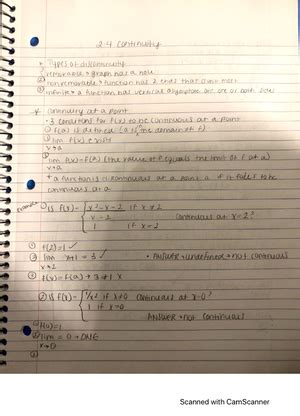 2.4 Continuity
* Types of discontinuity
① removable → graph has a hole
② nonremovable → function has 2 ends that don't meet
③ infinite → a function has vertical asymptote on one or both sides
* continuity at a point
· 3 conditions for f(x) to be continuous at a point
① f(a) is defined (a is in the domain of f)
② lim f(x) exists
x→a
③ lim f(x) = f(a) (the value of f equals the limit of f at a)
x→a
* a function is discontinuous at a point a if it fails to be
continuous at a
Examples
① is f(x) = { x² - x - 2 if x ≠ 2
x - 2 continuous at x = 2?
1 if x = 2
① f(2) = 1 ✓
② lim x+1 = 3 ✓ · Answer → undefined → not continuous
x→2
③ f(x) = f(a) → 3 ≠ 1 X
② is f(x) = { 1/x² if x ≠ 0 continuous at x = 0?
1 if x = 0
Answer → not continuous
① f(0) = 1
② lim = 0 → DNE
x→0
③
Scanned with CamScanner